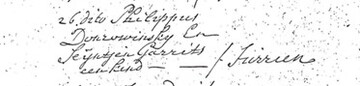 26. dito Philippus
Donrowinsky En
Seÿntjen Garrits
een kind — — / Jurrien